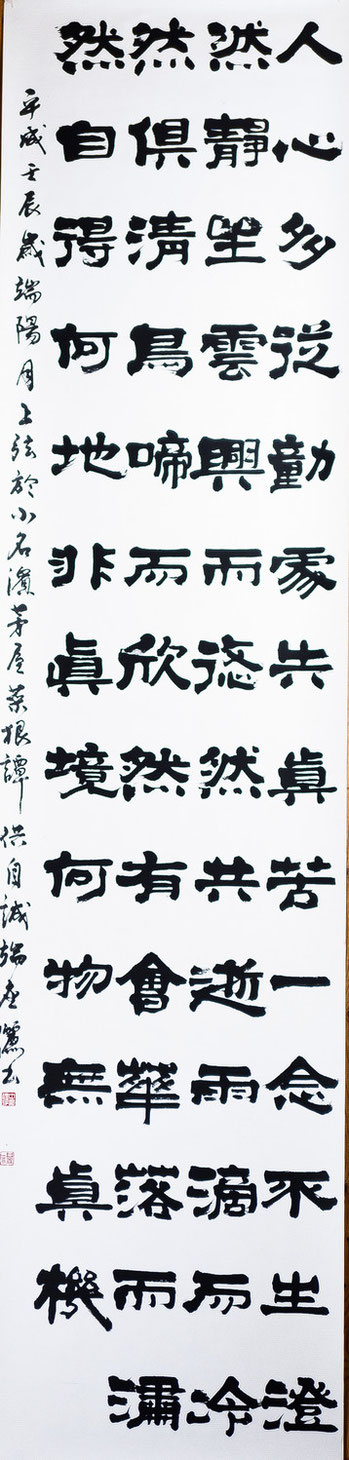 人心多從動處失眞若一念不生澄
然靜坐雲興而悠然共逝雨滴而冷
然俱清鳥啼而欣然有會華落而瀟
然自得何地非眞境何物無眞機
平成壬辰歳端陽月上弦於小名濱茅屋菜根譚供自誡